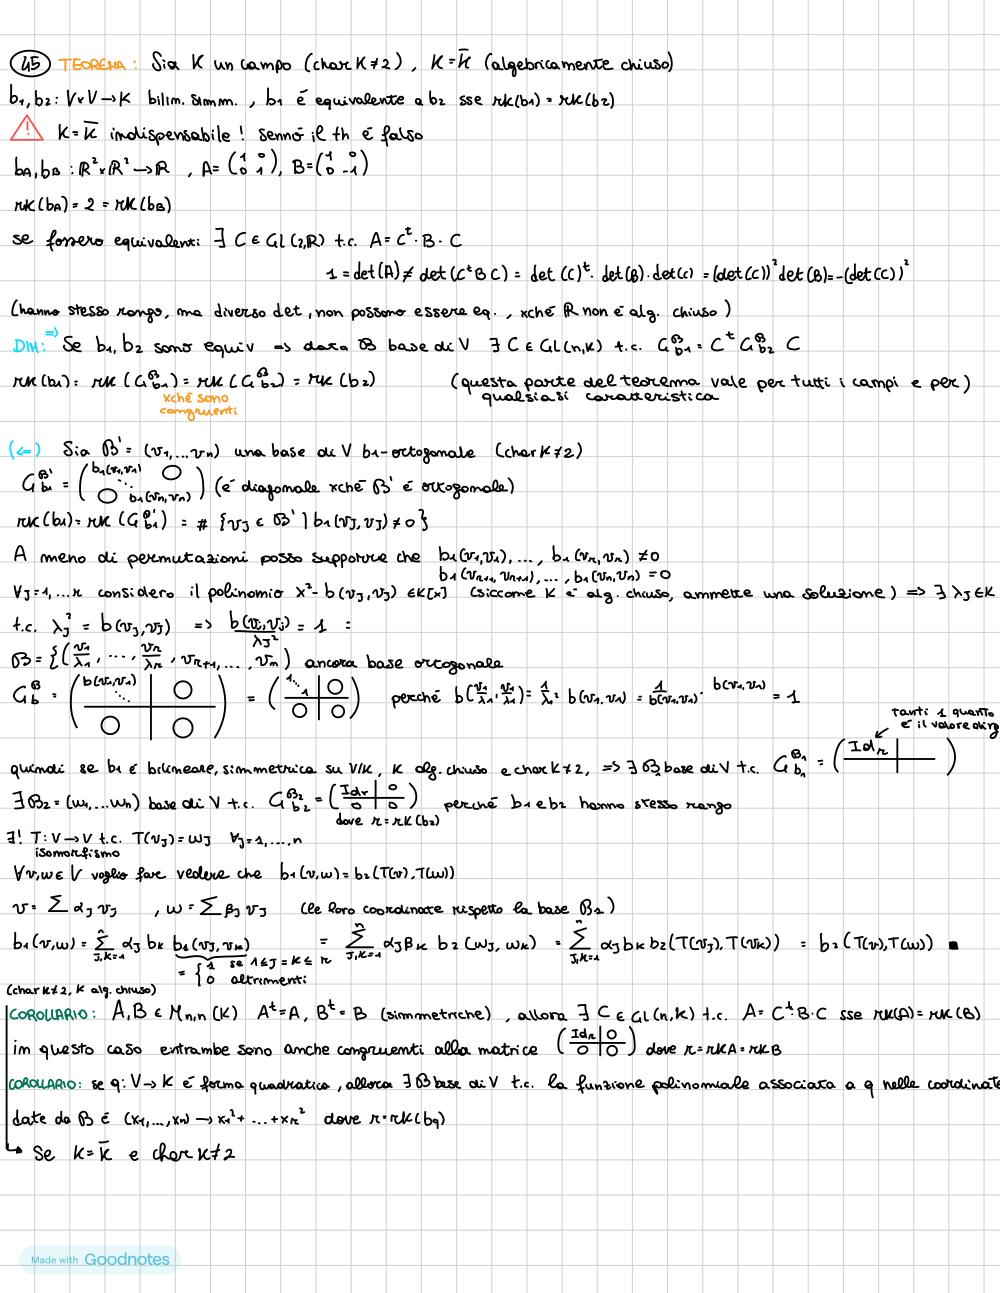 45 TEOREMA: Sia K un campo (char K≠2), K=K̄ (algebricamente chiuso)
b₁,b₂: V×V→K bilin. simm., b₁ é equivalente a b₂ sse rk(b₁)=rk(b₂)
! K=K̄ indispensabile! Sennó il th é falso
b_A,b_B: ℝ²×ℝ²→ℝ , A=(1 0 / 0 1), B=(1 0 / 0 -1)
rk(b_A)=2=rk(b_B)
se fossero equivalenti ∃ C∈Gl(2,ℝ) t.c. A=Cᵗ·B·C
1=det(A)≠det(CᵗBC)=det(C)ᵗ·det(B)·det(C)=(det(C))²det(B)=-(det(C))²
(hanno stesso rango, ma diverso det, non possono essere eq., xché ℝ non é alg. chiuso)
DIM: => Se b₁,b₂ sono equiv => data B base di V ∃ C∈Gl(n,K) t.c. G^B_b₁=Cᵗ G^B_b₂ C
rk(b₁)=rk(G^B_b₁)=rk(G^B_b₂)=rk(b₂) (questa parte del teorema vale per tutti i campi e per)
xché sono qualsiasi caratteristica
congruenti
(<=) Sia B'=(v₁,...vₙ) una base di V b₁-ortogonale (char K≠2)
G^B'_b₁=(b₁(v₁,v₁) ⋱ b₁(vₙ,vₙ)) (é diagonale xché B' é ortogonale)
rk(b₁)=rk(G^B'_b₁)=#{vⱼ∈B'|b₁(vⱼ,vⱼ)≠0}
A meno di permutazioni posso supporre che b₁(v₁,v₁),...,b₁(vᵣ,vᵣ)≠0
b₁(vᵣ₊₁,vᵣ₊₁),...,b₁(vₙ,vₙ)=0
∀j=1,...r considero il polinomio x²-b(vⱼ,vⱼ)∈K[x] (siccome K é alg. chiuso, ammette una soluzione) => ∃λⱼ∈K
t.c. λⱼ²=b(vⱼ,vⱼ) => b(vⱼ,vⱼ)/λⱼ²=1 :
B={(v₁/λ₁,...,vᵣ/λᵣ,vᵣ₊₁,...,vₙ) ancora base ortogonale
G^B_b=(b(v₁,v₁) ⋱ | 0 / 0 | 0)=(1 ⋱ | 0 / 0 | 0) perché b(v₁/λ₁,v₁/λ₁)=1/λ₁²·b(v₁,v₁)=1/b(v₁,v₁)·b(v₁,v₁)=1
tanti 1 quanto
é il valore di rg
quindi se b₁ é bilineare, simmetrica su V/K, K alg. chiuso e char K≠2, => ∃B₁ base di V t.c. G^B₁_b₁=(Idᵣ | / | )
∃B₂=(w₁,...wₙ) base di V t.c. G^B₂_b₂=(Idr | 0 / 0 | 0) perché b₁ e b₂ hanno stesso rango
dove r=rk(b₂)
∃! T:V→V t.c. T(vⱼ)=wⱼ ∀j=1,...,n
isomorfismo
∀v,w∈V voglio fare vedere che b₁(v,w)=b₂(T(v),T(w))
v=∑αⱼvⱼ , w=∑βⱼvⱼ (le loro coordinate rispetto la base B₁)
b₁(v,w)=∑ⁿ_{j,k=1} αⱼbₖ b₁(vⱼ,vₖ) = ∑ⁿ_{j,k=1} αⱼβₖ b₂(wⱼ,wₖ) = ∑ⁿ_{j,k=1} αⱼbₖb₂(T(vⱼ),T(vₖ)) = b₂(T(v),T(w)) ■
={1 se 1≤j=k≤r
0 altrimenti
(char K≠2, K alg. chiuso)
COROLLARIO: A,B∈Mₙ,ₙ(K) Aᵗ=A, Bᵗ=B (simmetriche), allora ∃ C∈Gl(n,K) t.c. A=Cᵗ·B·C sse rk(A)=rk(B)
in questo caso entrambe sono anche congruenti alla matrice (Idr | 0 / 0 | 0) dove r=rkA=rkB
COROLLARIO: se q:V→K é forma quadratica, allora ∃B base di V t.c. la funzione polinomiale associata a q nelle coordinate
date da B é (x₁,...,xₙ)→x₁²+...+xᵣ² dove r=rk(bq)
Se K=K̄ e char K≠2
Made with Goodnotes